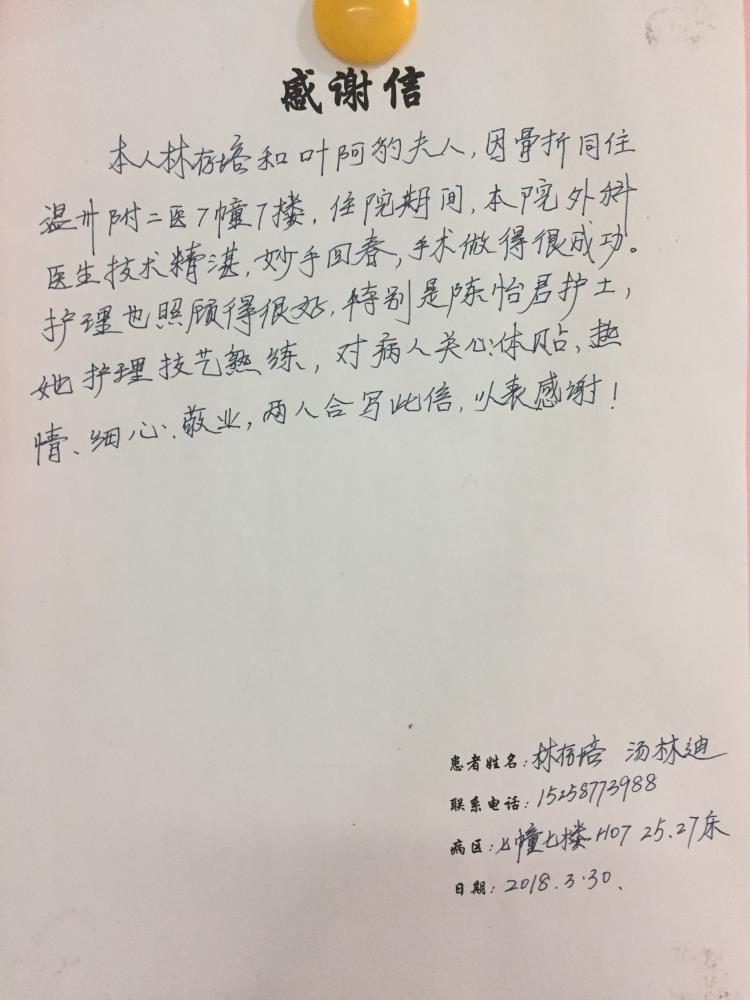 感谢信
本人林存培和叶阿豹夫人,因骨折同住
温州附二医7幢7楼,住院期间,本院外科
医生技术精湛,妙手回春,手术做得很成功。
护理也照顾得很好,特别是陈怡君护士,
她护理技艺熟练,对病人关心体贴、热
情、细心、敬业,两人合写此信,以表感谢!
患者姓名:林存培 汤林迪
联系电话:15258773988
病区:七幢七楼H07 25.27床
日期:2018.3.30.